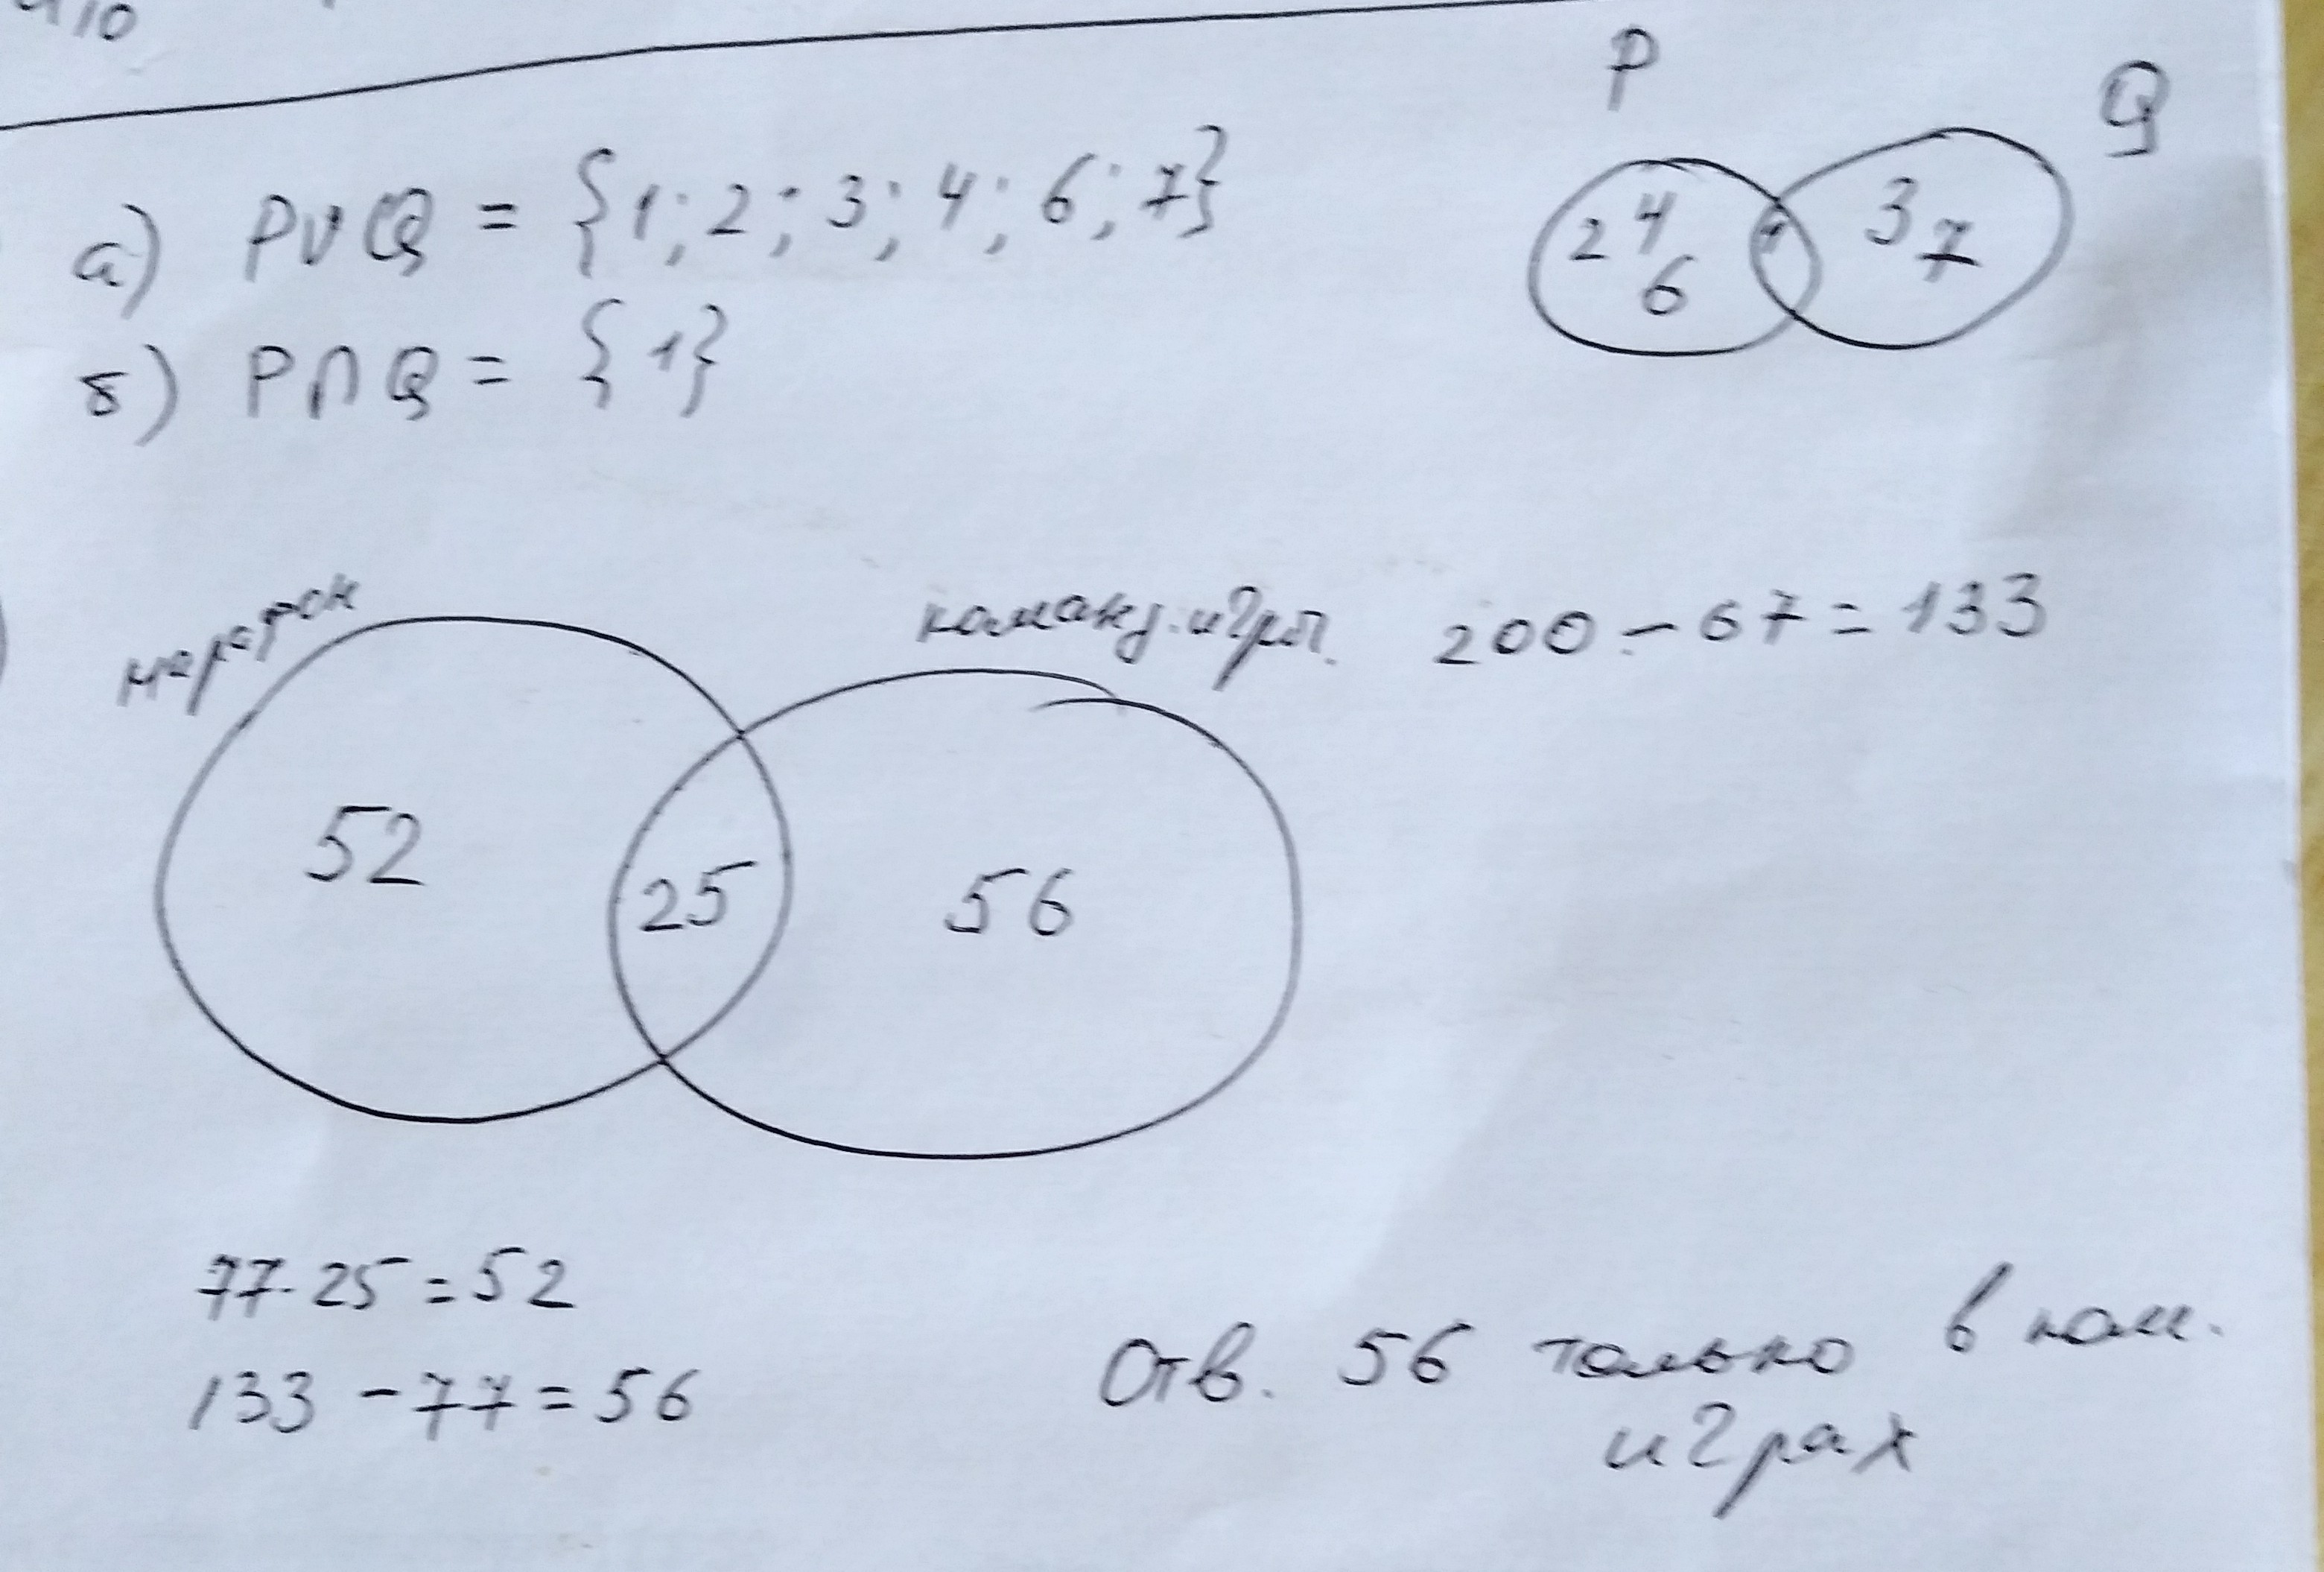 10
P Q
а) P∪Q = {1; 2; 3; 4; 6; 7}
2 4 6 1 3 7
б) P∩Q = {1}
марафон
команд. игры. 200 - 67 = 133
52 25 56
77-25=52
133 - 77 = 56
Отв. 56 только в ком.
играх